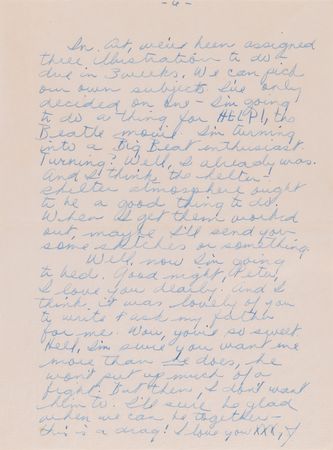 -6-
In Art, we've been assigned
three illustration to do -
due in 3 weeks. We can pick
our own subjects I've only
decided on one - I'm going
to do a thing for HELP!, the
Beatle movie. I'm turning
into a Big Beat enthusiast.
Turning? Well, I already was.
And I think the helter-
skelter atmosphere ought
to be a good thing to do.
When I get them worked
out, maybe I'll send you
some sketches or something.
Well, now I'm going
to bed. Good night, Pete,
I love you dearly. and I
think it was lovely of you
to write & ask my father
for me. Wow, you're so sweet
Hell, I'm sure you want me
more than he does, he
won't put up much of a
fight. But then, I don't want
him to. I'll sure be glad
when we can be together -
this is a drag! I love you XXX,